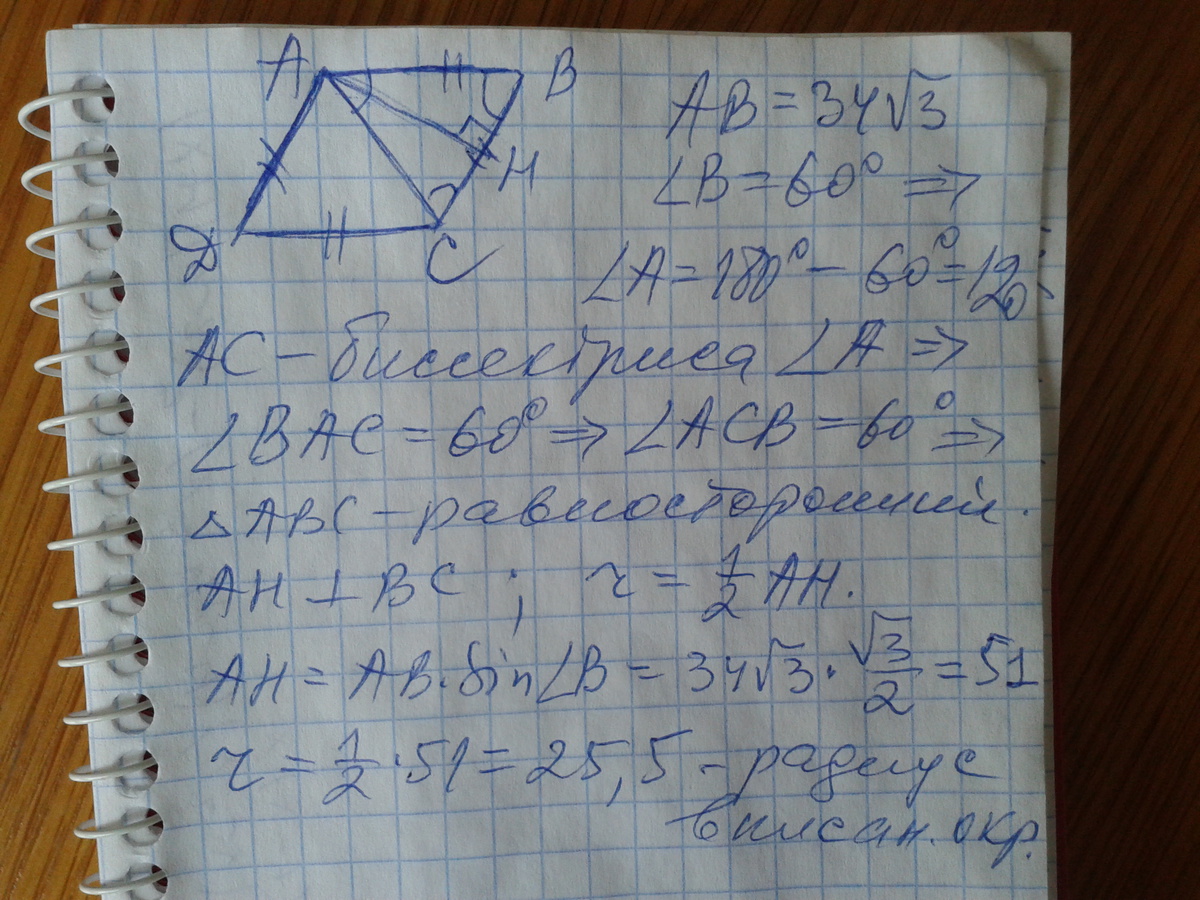 A B
H
D C
AB = 34√3
∠B = 60° ⇒
∠A = 180° − 60° = 120°
AC – биссектриса ∠A ⇒
∠BAC = 60° ⇒ ∠ACB = 60° ⇒
△ABC – равносторонний.
AH ⊥ BC ; r = 1/2 AH.
AH = AB · sin∠B = 34√3 · √3/2 = 51
r = 1/2 · 51 = 25,5 – радиус
вписан. окр.